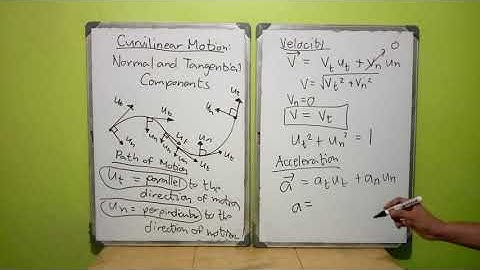 Curvilinear Motion:
Normal and Tangential
Components
u_t
u_t
u_t
u_n
u_n
u_n
u_n
u_t
u_t
u_n
u_t
Path of Motion
u_t = parallel to the
direction of motion
u_n = perpendicular to the
direction of motion
Velocity
0
V⃗ = V_t u_t + V_n u_n
V = √V_t² + V_n²
V_n = 0
V = V_t
u_t² + u_n² = 1
Acceleration
a⃗ = a_t u_t + a_n u_n
a =